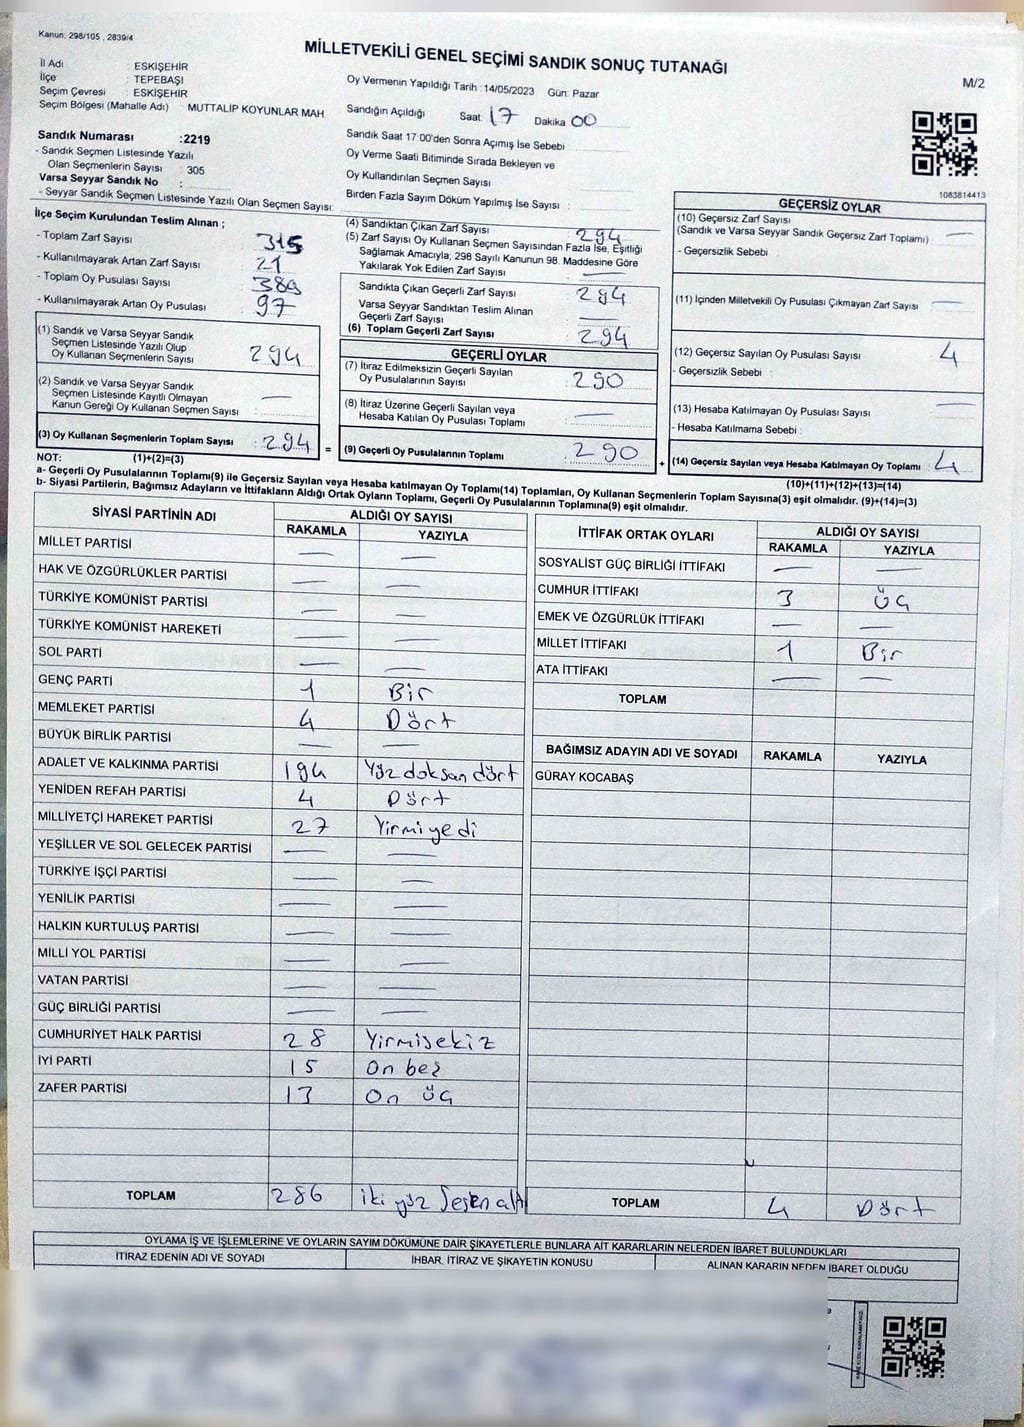 Kanun: 298/105 , 2839/4
MİLLETVEKİLİ GENEL SEÇİMİ SANDIK SONUÇ TUTANAĞI
M/2
İl Adı : ESKİŞEHİR
İlçe : TEPEBAŞI
Seçim Çevresi : ESKİŞEHİR
Seçim Bölgesi (Mahalle Adı) : MUTTALIP KOYUNLAR MAH
Sandık Numarası :2219
- Sandık Seçmen Listesinde Yazılı
Olan Seçmenlerin Sayısı : 305
Varsa Seyyar Sandık No :
- Seyyar Sandık Seçmen Listesinde Yazılı Olan Seçmen Sayısı:
Oy Vermenin Yapıldığı Tarih :14/05/2023 Gün: Pazar
Sandığın Açıldığı Saat: 17 Dakika 00
Sandık Saat 17:00'den Sonra Açımış İse Sebebi
Oy Verme Saati Bitiminde Sırada Bekleyen ve
Oy Kullandırılan Seçmen Sayısı :
Birden Fazla Sayım Döküm Yapılmış İse Sayısı :
1083814413
İlçe Seçim Kurulundan Teslim Alınan ;
- Toplam Zarf Sayısı : 315
- Kullanılmayarak Artan Zarf Sayısı : 21
- Toplam Oy Pusulası Sayısı : 389
- Kullanılmayarak Artan Oy Pusulası : 97
(1) Sandık ve Varsa Seyyar Sandık
Seçmen Listesinde Yazılı Olup
Oy Kullanan Seçmenlerin Sayısı : 294
(2) Sandık ve Varsa Seyyar Sandık
Seçmen Listesinde Kayıtlı Olmayan
Kanun Gereği Oy Kullanan Seçmen Sayısı : —
(3) Oy Kullanan Seçmenlerin Toplam Sayısı : 294 =
(4) Sandıktan Çıkan Zarf Sayısı : 294
(5) Zarf Sayısı Oy Kullanan Seçmen Sayısından Fazla İse, Eşitliği
Sağlamak Amacıyla; 298 Sayılı Kanunun 98. Maddesine Göre
Yakılarak Yok Edilen Zarf Sayısı : —
Sandıkta Çıkan Geçerli Zarf Sayısı : 294
Varsa Seyyar Sandıktan Teslim Alınan
Geçerli Zarf Sayısı : —
(6) Toplam Geçerli Zarf Sayısı : 294
GEÇERLİ OYLAR
(7) İtiraz Edilmeksizin Geçerli Sayılan
Oy Pusulalarının Sayısı : 290
(8) İtiraz Üzerine Geçerli Sayılan veya
Hesaba Katılan Oy Pusulası Toplamı : —
(9) Geçerli Oy Pusulalarının Toplamı : 290 +
GEÇERSİZ OYLAR
(10) Geçersiz Zarf Sayısı
(Sandık ve Varsa Seyyar Sandık Geçersiz Zarf Toplamı) : —
- Geçersizlik Sebebi :
(11) İçinden Milletvekili Oy Pusulası Çıkmayan Zarf Sayısı : —
(12) Geçersiz Sayılan Oy Pusulası Sayısı : 4
- Geçersizlik Sebebi :
(13) Hesaba Katılmayan Oy Pusulası Sayısı : —
- Hesaba Katılmama Sebebi :
(14) Geçersiz Sayılan veya Hesaba Katılmayan Oy Toplamı : 4
NOT: (1)+(2)=(3)
(10)+(11)+(12)+(13)=(14)
a- Geçerli Oy Pusulalarının Toplamı(9) ile Geçersiz Sayılan veya Hesaba katılmayan Oy Toplamı(14) Toplamları, Oy Kullanan Seçmenlerin Toplam Sayısına(3) eşit olmalıdır. (9)+(14)=(3)
b- Siyasi Partilerin, Bağımsız Adayların ve İttifakların Aldığı Ortak Oyların Toplamı, Geçerli Oy Pusulalarının Toplamına(9) eşit olmalıdır.
SİYASİ PARTİNİN ADI ALDIĞI OY SAYISI
RAKAMLA YAZIYLA
MİLLET PARTİSİ — —
HAK VE ÖZGÜRLÜKLER PARTİSİ — —
TÜRKİYE KOMÜNİST PARTİSİ — —
TÜRKİYE KOMÜNİST HAREKETİ — —
SOL PARTİ — —
GENÇ PARTİ 1 Bir
MEMLEKET PARTİSİ 4 Dört
BÜYÜK BİRLİK PARTİSİ — —
ADALET VE KALKINMA PARTİSİ 194 Yüz doksan dört
YENİDEN REFAH PARTİSİ 4 Dört
MİLLİYETÇİ HAREKET PARTİSİ 27 Yirmiyedi
YEŞİLLER VE SOL GELECEK PARTİSİ — —
TÜRKİYE İŞÇİ PARTİSİ — —
YENİLİK PARTİSİ — —
HALKIN KURTULUŞ PARTİSİ — —
MİLLİ YOL PARTİSİ — —
VATAN PARTİSİ — —
GÜÇ BİRLİĞİ PARTİSİ — —
CUMHURİYET HALK PARTİSİ 28 Yirmisekiz
İYİ PARTİ 15 On beş
ZAFER PARTİSİ 13 On üç
TOPLAM 286 iki yüz Seksen altı
İTTİFAK ORTAK OYLARI ALDIĞI OY SAYISI
RAKAMLA YAZIYLA
SOSYALİST GÜÇ BİRLİĞİ İTTİFAKI — —
CUMHUR İTTİFAKI 3 Üç
EMEK VE ÖZGÜRLÜK İTTİFAKI — —
MİLLET İTTİFAKI 1 Bir
ATA İTTİFAKI — —
TOPLAM
BAĞIMSIZ ADAYIN ADI VE SOYADI RAKAMLA YAZIYLA
GÜRAY KOCABAŞ
TOPLAM 4 Dört
OYLAMA İŞ VE İŞLEMLERİNE VE OYLARIN SAYIM DÖKÜMÜNE DAİR ŞİKAYETLERLE BUNLARA AİT KARARLARIN NELERDEN İBARET BULUNDUKLARI
İTİRAZ EDENİN ADI VE SOYADI İHBAR, İTİRAZ VE ŞİKAYETİN KONUSU ALINAN KARARIN NEDEN İBARET OLDUĞU